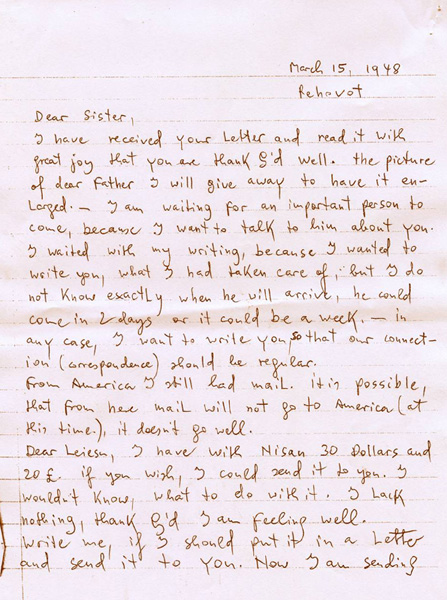 March 15, 1948
Rehovot
Dear Sister,
I have received your Letter and read it with
great joy that you are thank G'd well. the picture
of dear Father I will give away to have it en-
Larged. — I am waiting for an important person to
come, because I want to talk to him about you.
I waited with my writing, because I wanted to
write you, what I had taken care of, but I do
not know exactly when he will arrive, he could
come in 2 days or it could be a week. — in
any case, I want to write you so that our connect-
ion (correspondence) should be regular.
From America I still had mail. it is possible,
that from here mail will not go to America (at
this time.), it doesn't go well.
Dear Leiesn, I have with Nisan 30 Dollars and
20 £. if you wish, I could send it to you. I
wouldn't know, what to do with it. I Lack
nothing, thank G'd I am feeling well.
write me, if I should put it in a Letter
and send it to you. Now I am sending